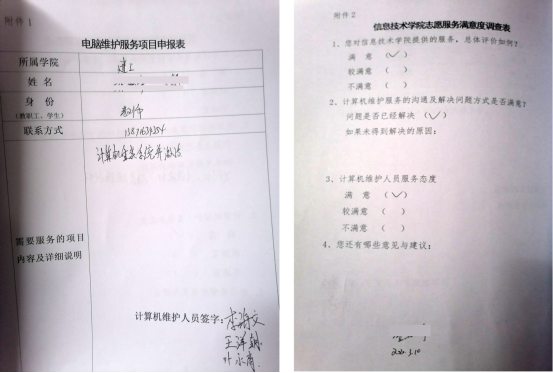 附件1
电脑维护服务项目申报表
所属学院 建工
姓名
身份
(教职工、学生) 教师
联系方式
计算机重装系统并激活
需要服务的项目
内容及详细说明
计算机维护人员签字:
附件2
信息技术学院志愿服务满意度调查表
1、您对信息技术学院提供的服务,总体评价如何?
满意 (✓)
较满意 ( )
不满意 ( )
2、计算机维护服务的沟通及解决问题方式是否满意?
问题是否已经解决 (✓)
如果未得到解决的原因:
3、计算机维护人员服务态度
满意 (✓)
较满意 ( )
不满意 ( )
4、您还有哪些意见与建议: